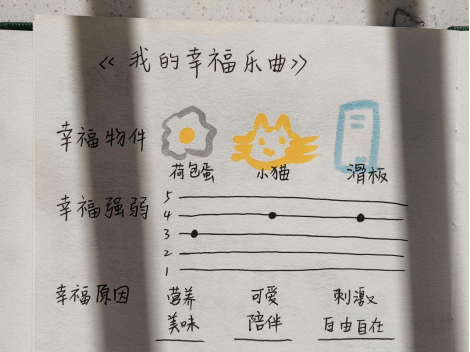 《我的幸福乐曲》
幸福物件
荷包蛋 小猫 滑板
幸福强弱
5
4
3
2
1
幸福原因 营养 可爱 刺激
美味 陪伴 自由自在